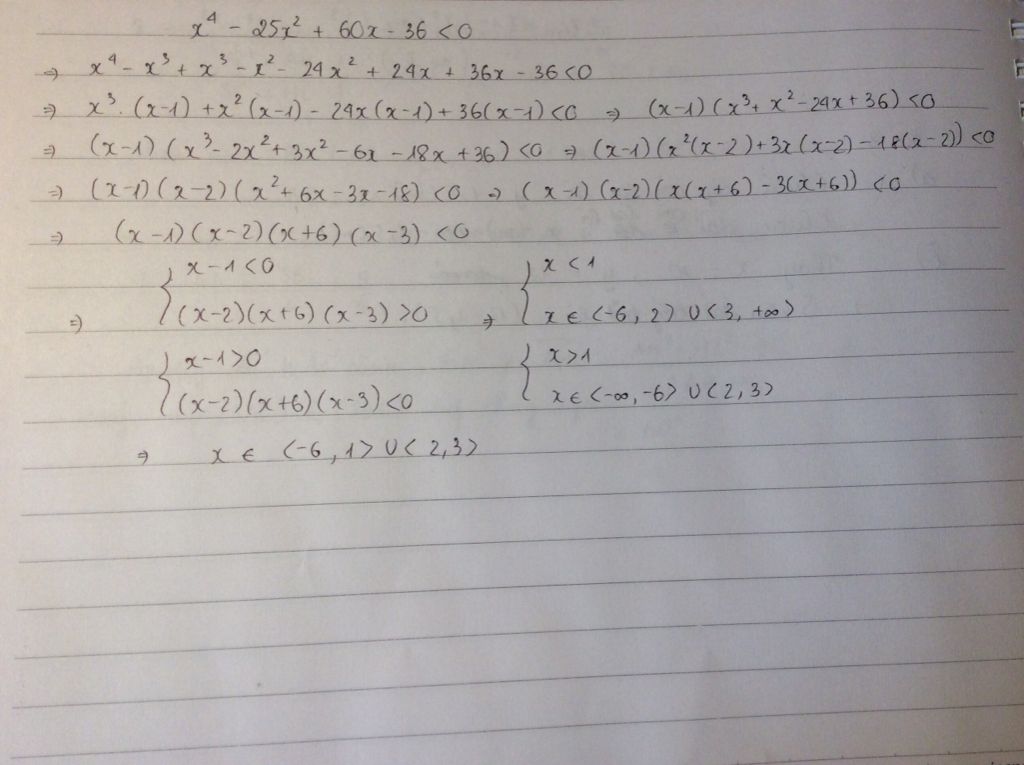 x⁴ - 25x² + 60x - 36 < 0
⇒ x⁴ - x³ + x³ - x² - 24x² + 24x + 36x - 36 < 0
⇒ x³ · (x-1) + x² (x-1) - 24x (x-1) + 36 (x-1) < 0 ⇒ (x-1) (x³ + x² - 24x + 36) < 0
⇒ (x-1) (x³ - 2x² + 3x² - 6x - 18x + 36) < 0 ⇒ (x-1) (x²(x-2) + 3x (x-2) - 18(x-2)) < 0
⇒ (x-1) (x-2) (x² + 6x - 3x - 18) < 0 ⇒ (x-1) (x-2) (x(x+6) - 3(x+6)) < 0
⇒ (x-1) (x-2) (x+6) (x-3) < 0
{ x-1 < 0 { x < 1
⇒ (x-2) (x+6) (x-3) > 0 ⇒ x ∈ <-6, 2) ∪ <3, +∞>
{ x-1 > 0 { x > 1
(x-2) (x+6) (x-3) < 0 x ∈ <-∞, -6> ∪ (2, 3>
⇒ x ∈ <-6, 1> ∪ < 2,3>